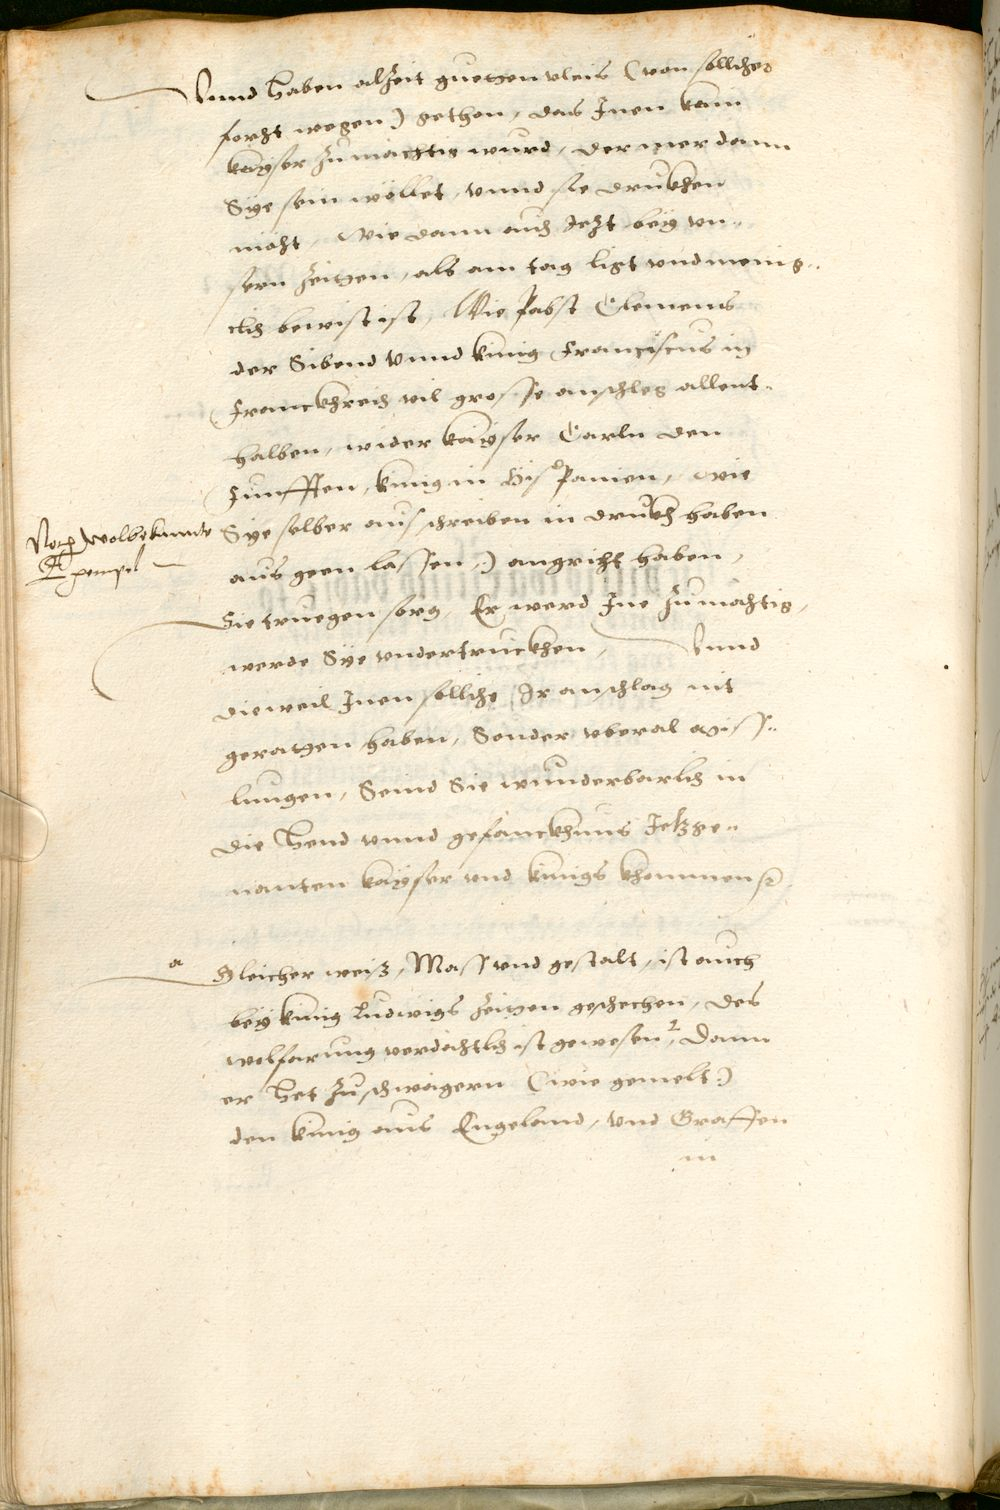 Vnnd haben alzeit guethen vleis (von sollicher
forcht wegen) gethon, das Inen kain
kayser zu mächtig wurd, der mer dann
Sye sein wöllet, vnnd sie drukhen
möcht, Wie dann auch Iezt bey vn=
sern Zeithen, als am tag ligt vnd menig=
clich bewist ist, Wie Pabst Clemens
der Sibend vnnd künig Franciscus in
Franckhreich vil grosse anschleg allent=
halben, wider kayser Carln den
Funfften, künig in Hispanien, wie
Sye selber aus schreiben in drukh haben
aus geen lassen,) angricht haben,
Sie truegen sorg, Er werd Ine zu mächtig,
werde Sye vndertruckhen, Vnnd
dieweil Inen solliche Ir anschlag nit
gerathen haben, Sonder vberal miss=
lungen, Seind Sie wunderbarlich in
die Hend vnnd gefanckhnus Iezge=
nanten kayser vnd künigs khommen
Wolbekannte
Exempel
a
Gleicher weiß, Mass vnd gestalt, ist auch
bey künig Ludwigs Zeithen geschechen, des
wolfarung verdächtlich ist gewesen, Dann
er het zu schwägern (wie gemelt)
den künig aus Engeland, vnd Graffen
in